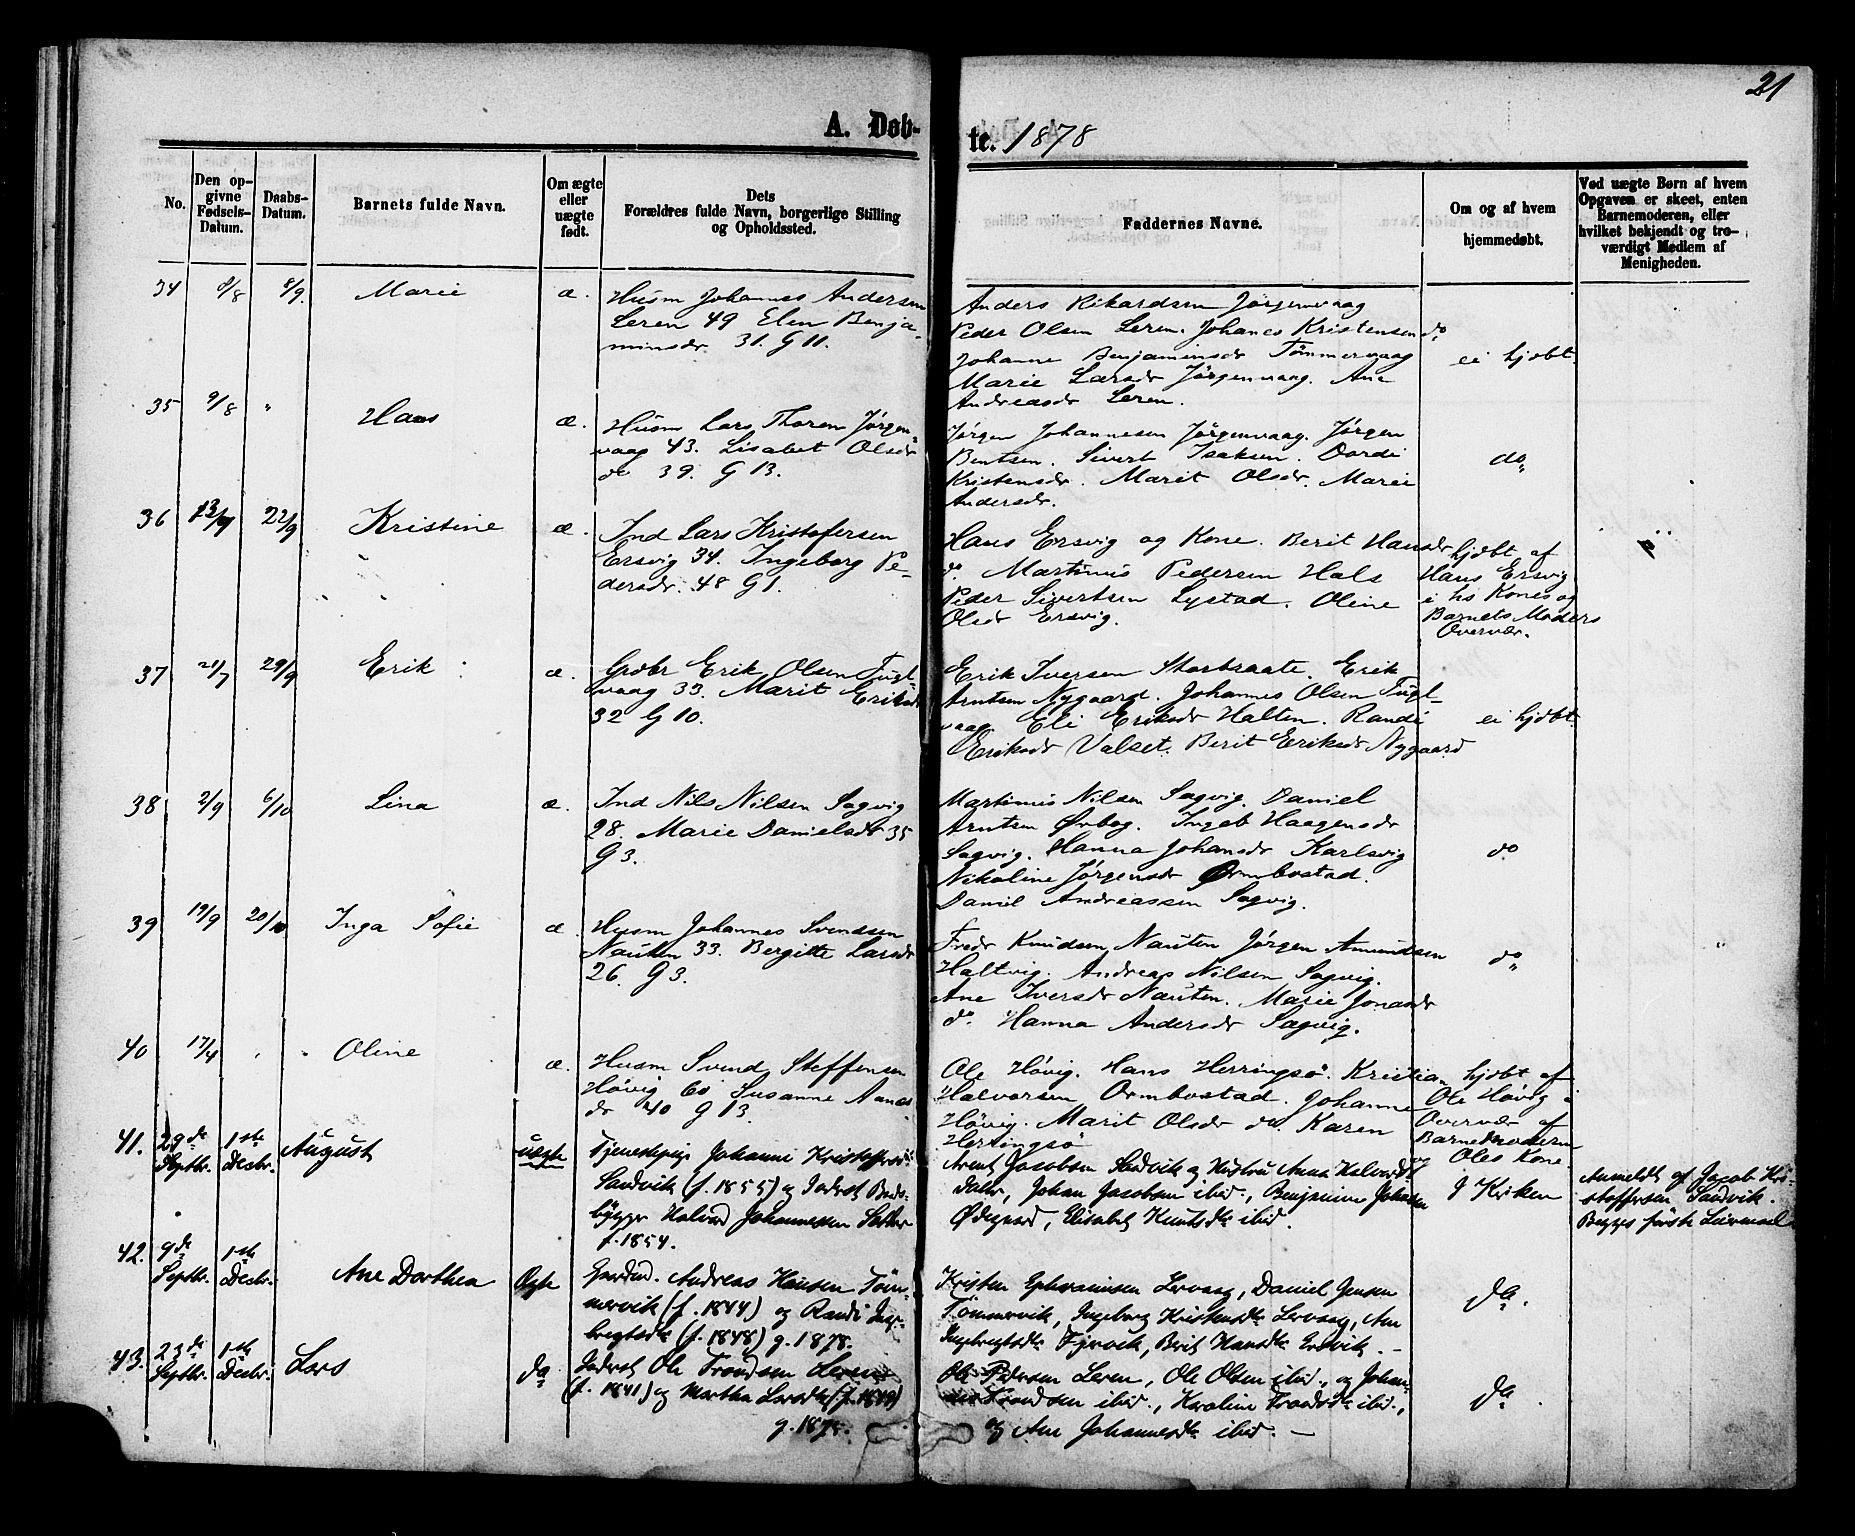 21
A. Døb-
te. 1878
No.
Den op-
givne
Fødsels-
Datum.
Daabs-
Datum.
Barnets fulde Navn.
Om ægte
eller
uægte
født.
Dets
Forældres fulde Navn, borgerlige Stilling
og Opholdssted.
Faddernes Navne.
Om og af hvem
hjemmedøbt.
Ved uægte Børn af hvem
Opgaven er skeet, enten
Barnemoderen, eller
hvilket bekjendt og tro-
værdigt Medlem af
Menigheden.
34 8/8 8/9 Marie æ.
Husm Johannes Andersen
Leren 49 Elen Benja-
minsdr. 31. G 11.
Anders Rikardsen Jørgenvaag
Peder Olsen Leren. Johanes Kristensen do
Johanne Benjaminsdr Tømmervaag
Marie Larsdr Jørgenvaag. Ane
Andreasdr Leren.
ei hjdbt.
35 9/8 " Hans æ.
Husm Lars Thoren Jørgen-
vaag 43. Lisabet Olsdr
do 39. G 13.
Jørgen Johannesen Jørgenvaag. Jørgen
Bentsen. Sivert Isaksen. Dordi
Kristensdr. Marit Olsdr. Marie
Andersdr.
do
36 22/9 Kristine æ.
Ind Lars Kristofersen
Ersvig 34. Ingeborg Pe-
dersdr. 48 G 1.
Hans Ersvig og Kone. Berit Hansdr
do. Martinus Pedersen Hals
Peder Sivertsen Lystad. Oline
Olsdr Ersvig.
hjdbt af
Hans Ersvig
i hs Kones og
Barnets Moders
Overvær.
37 21/7 29/9 Erik æ.
Grdbr Erik Olsen Fugl-
vaag 33. Marit Eriksdr
32 G 10.
Erik Iversen Storbraate. Erik
Arntsen Nygaard. Johannes Olsen Fugl-
vaag Eli Eriksdr Halten. Randi
Eriksdr Valset. Berit Eriksdr Nygaard
ei hjdbt.
38 2/9 6/10 Lina æ.
Ind Nils Nilsen Sagvig
28. Marie Danielsdr 35
G 3.
Martinus Nilsen Sagvig. Daniel
Arntsen Ørbog. Ingeb Haagensdr
Sagvig. Hanna Johansdr Karlsvig
Nikoline Jørgensdr Ormbostad.
Daniel Andreassen Sagvig.
do
39 19/9 20/10 Inga Sofie æ.
Husm Johannes Svendsen
Nausten 33. Bergitte Larsdr
26. G 3.
Fredr Knudsen Nausten Jørgen Amundsen
Haltvig. Andreas Nilsen Sagvig.
Ane Iversdr Nausten. Marie Jonasdr
do. Hanna Andersdr Sagvig.
do
40 17/4 " Oline æ.
Husm Svend Steffensen
Høvig 60 Susanne Aanes
dr 40 G 13.
Ole Høvig. Hans Herringsø. Kristian
Halvorsen Ormbostad. Johanne
Høvig. Marit Olsdr do. Karen
Herringsø
hjdbt af
Ole Høvig i
Overvær af
Barnemoderen
og Oles Kone.
41. 29de
Septbr.
1ste
Decbr. August uægte
Tjenestepige Johanne Kristoffersdr
Sandvik (f. 1855) og Inderst Baads-
bygger Halvord Johannessen Sæther
f. 1854.
Arent Jacobsen Sandvik og Hustru Anna Halvords-
datr, Johan Jacobsen ibid., Benjamin Johnsen
Ødegaard, Elisabet Knutsdtr ibid.
I Kirken
Anmeldt af Jacob Kri-
stoffersen Sandvik.
Begges første Leiermaal
42. 9de
Septbr.
1ste
Decbr. Ane Dorthea Ægte
Gaardmd. Andreas Hansen Tøm-
mervik (f. 1844) og Randi Ing-
bregtsdtr (f. 1848) g. 1878.
Kristen Ephraimsen Lervaag, Daniel Jensen
Tømmervik, Ingeborg Kristensdtr Lervaag, Ane
Ingebregtsdtr Fjervik, Berit Hansdtr Ersvik. -
do.
43. 23de
Septbr.
1ste
Decbr. Lars do
Inderst Ole Trondsen Leren
(f. 1841) og Martha Larsdtr (f. 1849)
g. 1875.
Ole Pedersen Leren, Ole Olsen ibid., og Johan-
nes Trondsen ibid., Karoline Trondsdtr ibid.,
og Ane Johannesdtr ibid. -
do.